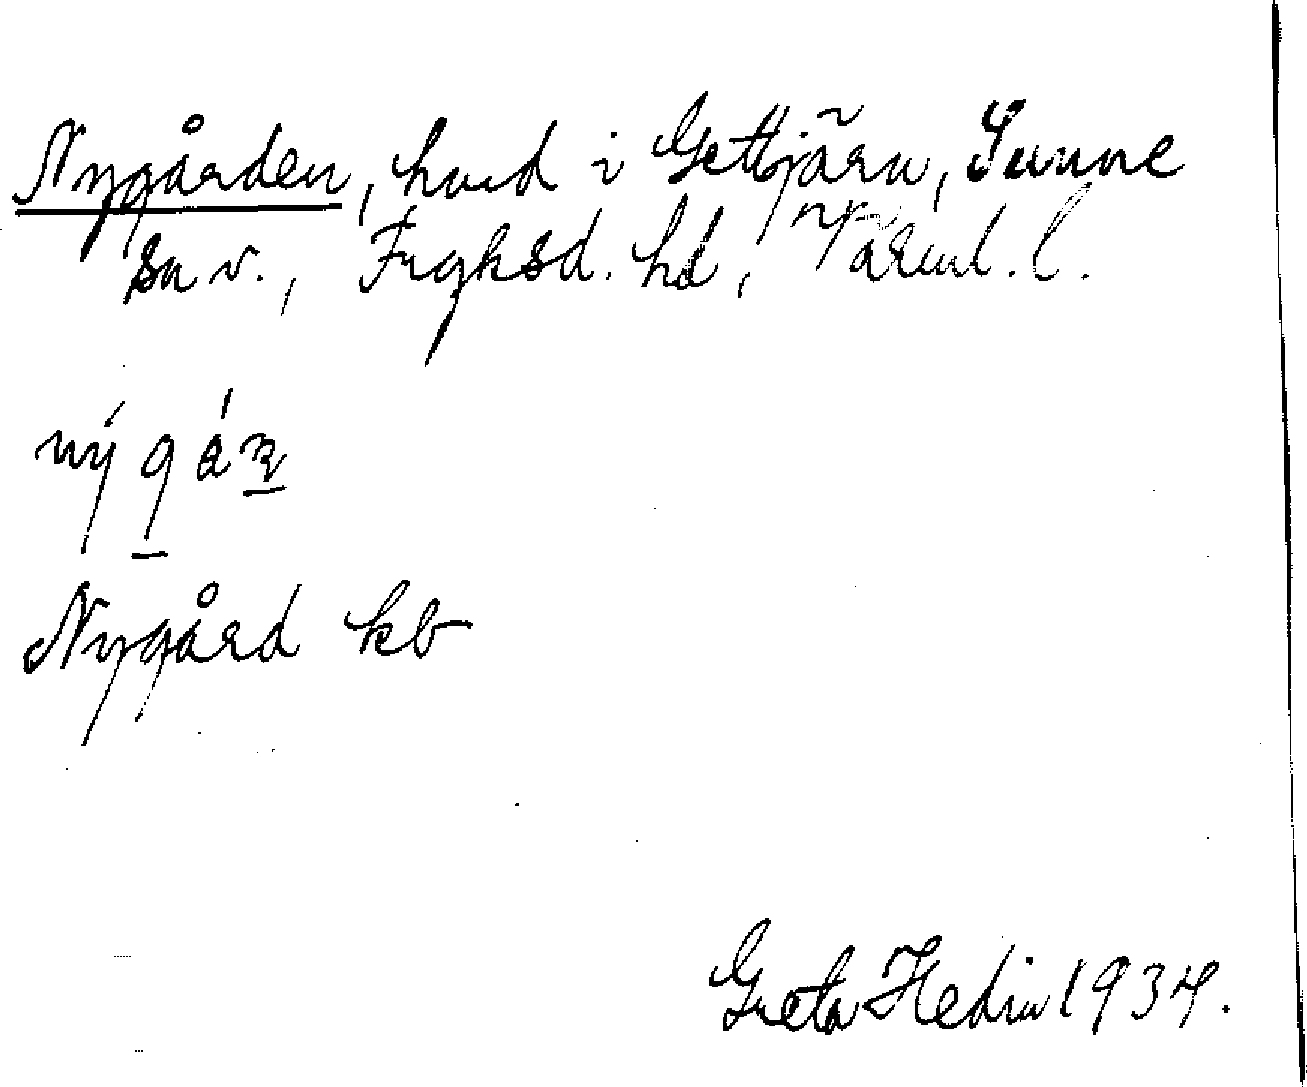 Nygården, hmd i Gettjärn, Sunne
sn v., Fryksd. hd, Värml. l.
Nygård kb
Greta Hedin 1934.